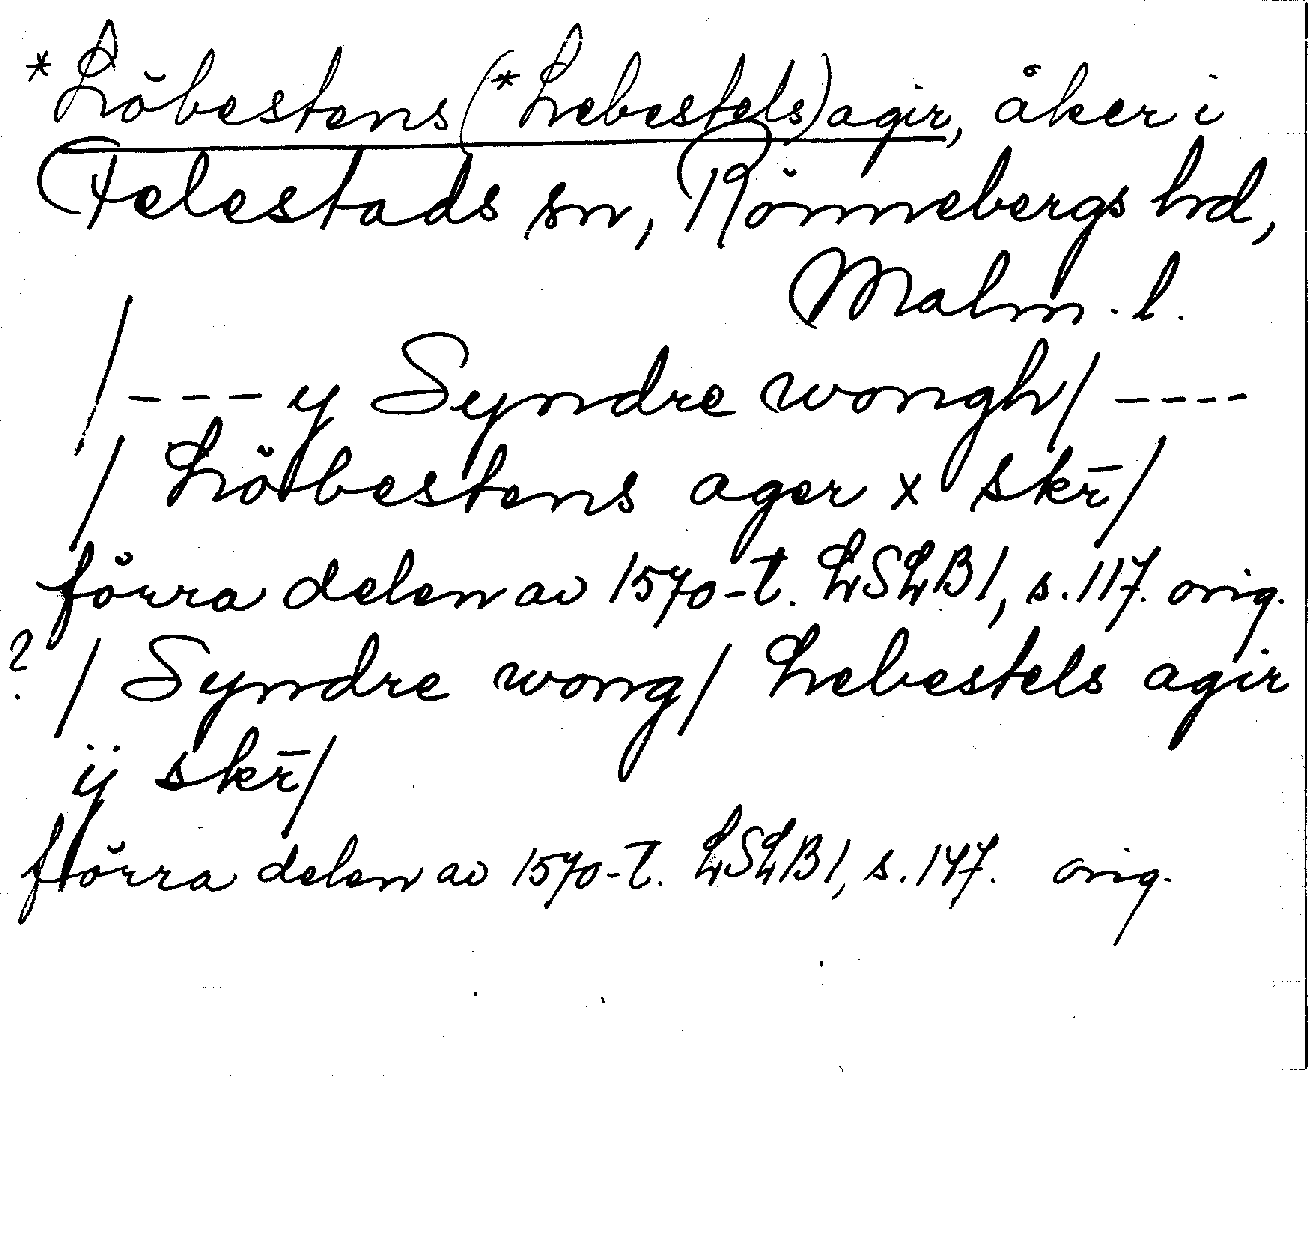 *Löbestens (*Lebestels) agir, åker i
Felestads sn, Rönnebergs hd,
Malm. l.
/ - - - y Syndre wongh/ - - - -
/ Löbestens ager x skr̄/
förra delen av 1570-t. LSLB1, s. 117. orig.
? / Syndre wong/ Lebestels agir
ij skr̄/
förra delen av 1570-t. LSLB1, s. 147. orig.